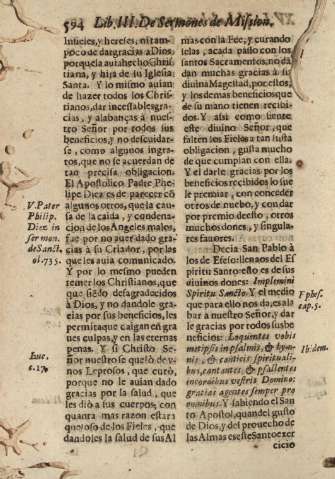 594 Lib. III. De Sermones de Mission.
Infieles, y hereges, ni tam-
poco de dar gracias a Dios,
porque la aui a hecho Chris-
tiana, y hija de su Iglesia
Santa. Y lo mismo auian
de hazer todos los Chris-
tianos, dar incessables gra-
cias, y alabanças à nues-
tro Señor por todos sus
beneficios, y no descuidar-
se, como algunos ingra-
tos, que no se acuerdan de
tan precisa obligacion.
El Apostolico Padre Phe-
lipe Diez es de parecer cõ
algunos otros, que la cau-
sa de la caida, y condena-
cion de los Angeles malos,
fue por no auer dado gra-
cias à su Criador, por las
que les auia comunicado.
Y por lo mesmo pueden
temer los Christianos, que
que siẽdo desagradecidos
à Dios, y no dandole gra-
cias por sus beneficios, les
permita que caigan en gra
ues culpas, y en las eternas
penas. Y si Christo Se-
ñor nuestro se quexò de y-
nos Leprosos, que curò,
porque no le auian dado
gracias por la salud, que
les diò à sus cuerpos, con
quanta mas razon estarà
quexoso de los Fieles, que
dandoles la salud de sus Al
V. Pater
Philip.
Diez in
ser mon.
de Sanct.
ol. 735.
Luc.
c. 17.
mas con la Fee, y curando
selas, à cada passo con los
santos Sacramentos, no dà
dan muchas gracias à su
diuina Magestad, por ellos,
y los demas beneficios que
de su mano tienen recibi-
dos. Y assi como siente
este diuino Señor, que
falten los Fieles à tan justa
obligacion, gusta mucho
de que cumplan con ella.
Y el darle gracias por los
beneficios recibidos lo sue
le premiar, con conceder
otros de nueuo, y con dar
por premio de esto, otros
muchos dones, y singula-
res fauores.
Decia San Pablo à
los de Efeso: llenaos del Es
piritu Santo: esto es de sus
diuinos dones: Implemini
Spiritu Sancto. Y el medio
que para ello nos dà, es ala
bar a nuestro Señor, y dar
le gracias por todos sus be
neficios: Loquentes vobis
metipsis in psalmis, & hym-
nis, & canticis spirituali-
bus, cantantes, & psallentes
in cordibus vestris Domino:
gratias agentes semper pro
omnibus. Y sabiendo el San
to Apostol, quan del gusto
de Dios, y del prouecho de
las Almas es este Santo exer
cicio
Ephes.
cap. 5.
Ibidem.